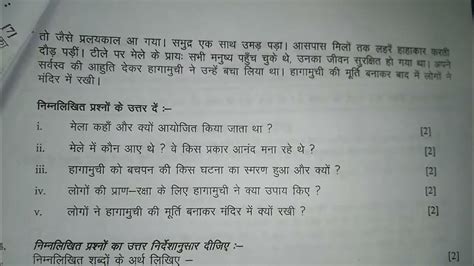 [7]
तो जैसे प्रलयकाल आ गया। समुद्र एक साथ उमड़ पड़ा। आसपास मिलों तक लहरें हाहाकार करती
दौड़ पड़ीं। टीले पर मेले के प्रायः सभी मनुष्य पहुँच चुके थे, उनका जीवन सुरक्षित हो गया था। अपने
सर्वस्व की आहुति देकर हागामुची ने उन्हें बचा लिया था। हागामुची की मूर्ति बनाकर बाद में लोगों ने
मंदिर में रखी।
निम्नलिखित प्रश्नों के उत्तर दें :–
i. मेला कहाँ और क्यों आयोजित किया जाता था ? [2]
ii. मेले में कौन आए थे ? वे किस प्रकार आनंद मना रहे थे ? [2]
iii. हागामुची को बचपन की किस घटना का स्मरण हुआ और क्यों ? [2]
iv. लोगों की प्राण–रक्षा के लिए हागामुची ने क्या उपाय किए ? [2]
v. लोगों ने हागामुची की मूर्ति बनाकर मंदिर में क्यों रखी ? [2]
निम्नलिखित प्रश्नों का उत्तर निर्देशानुसार दीजिए :–
निम्नलिखित शब्दों के अर्थ लिखिए – [2]